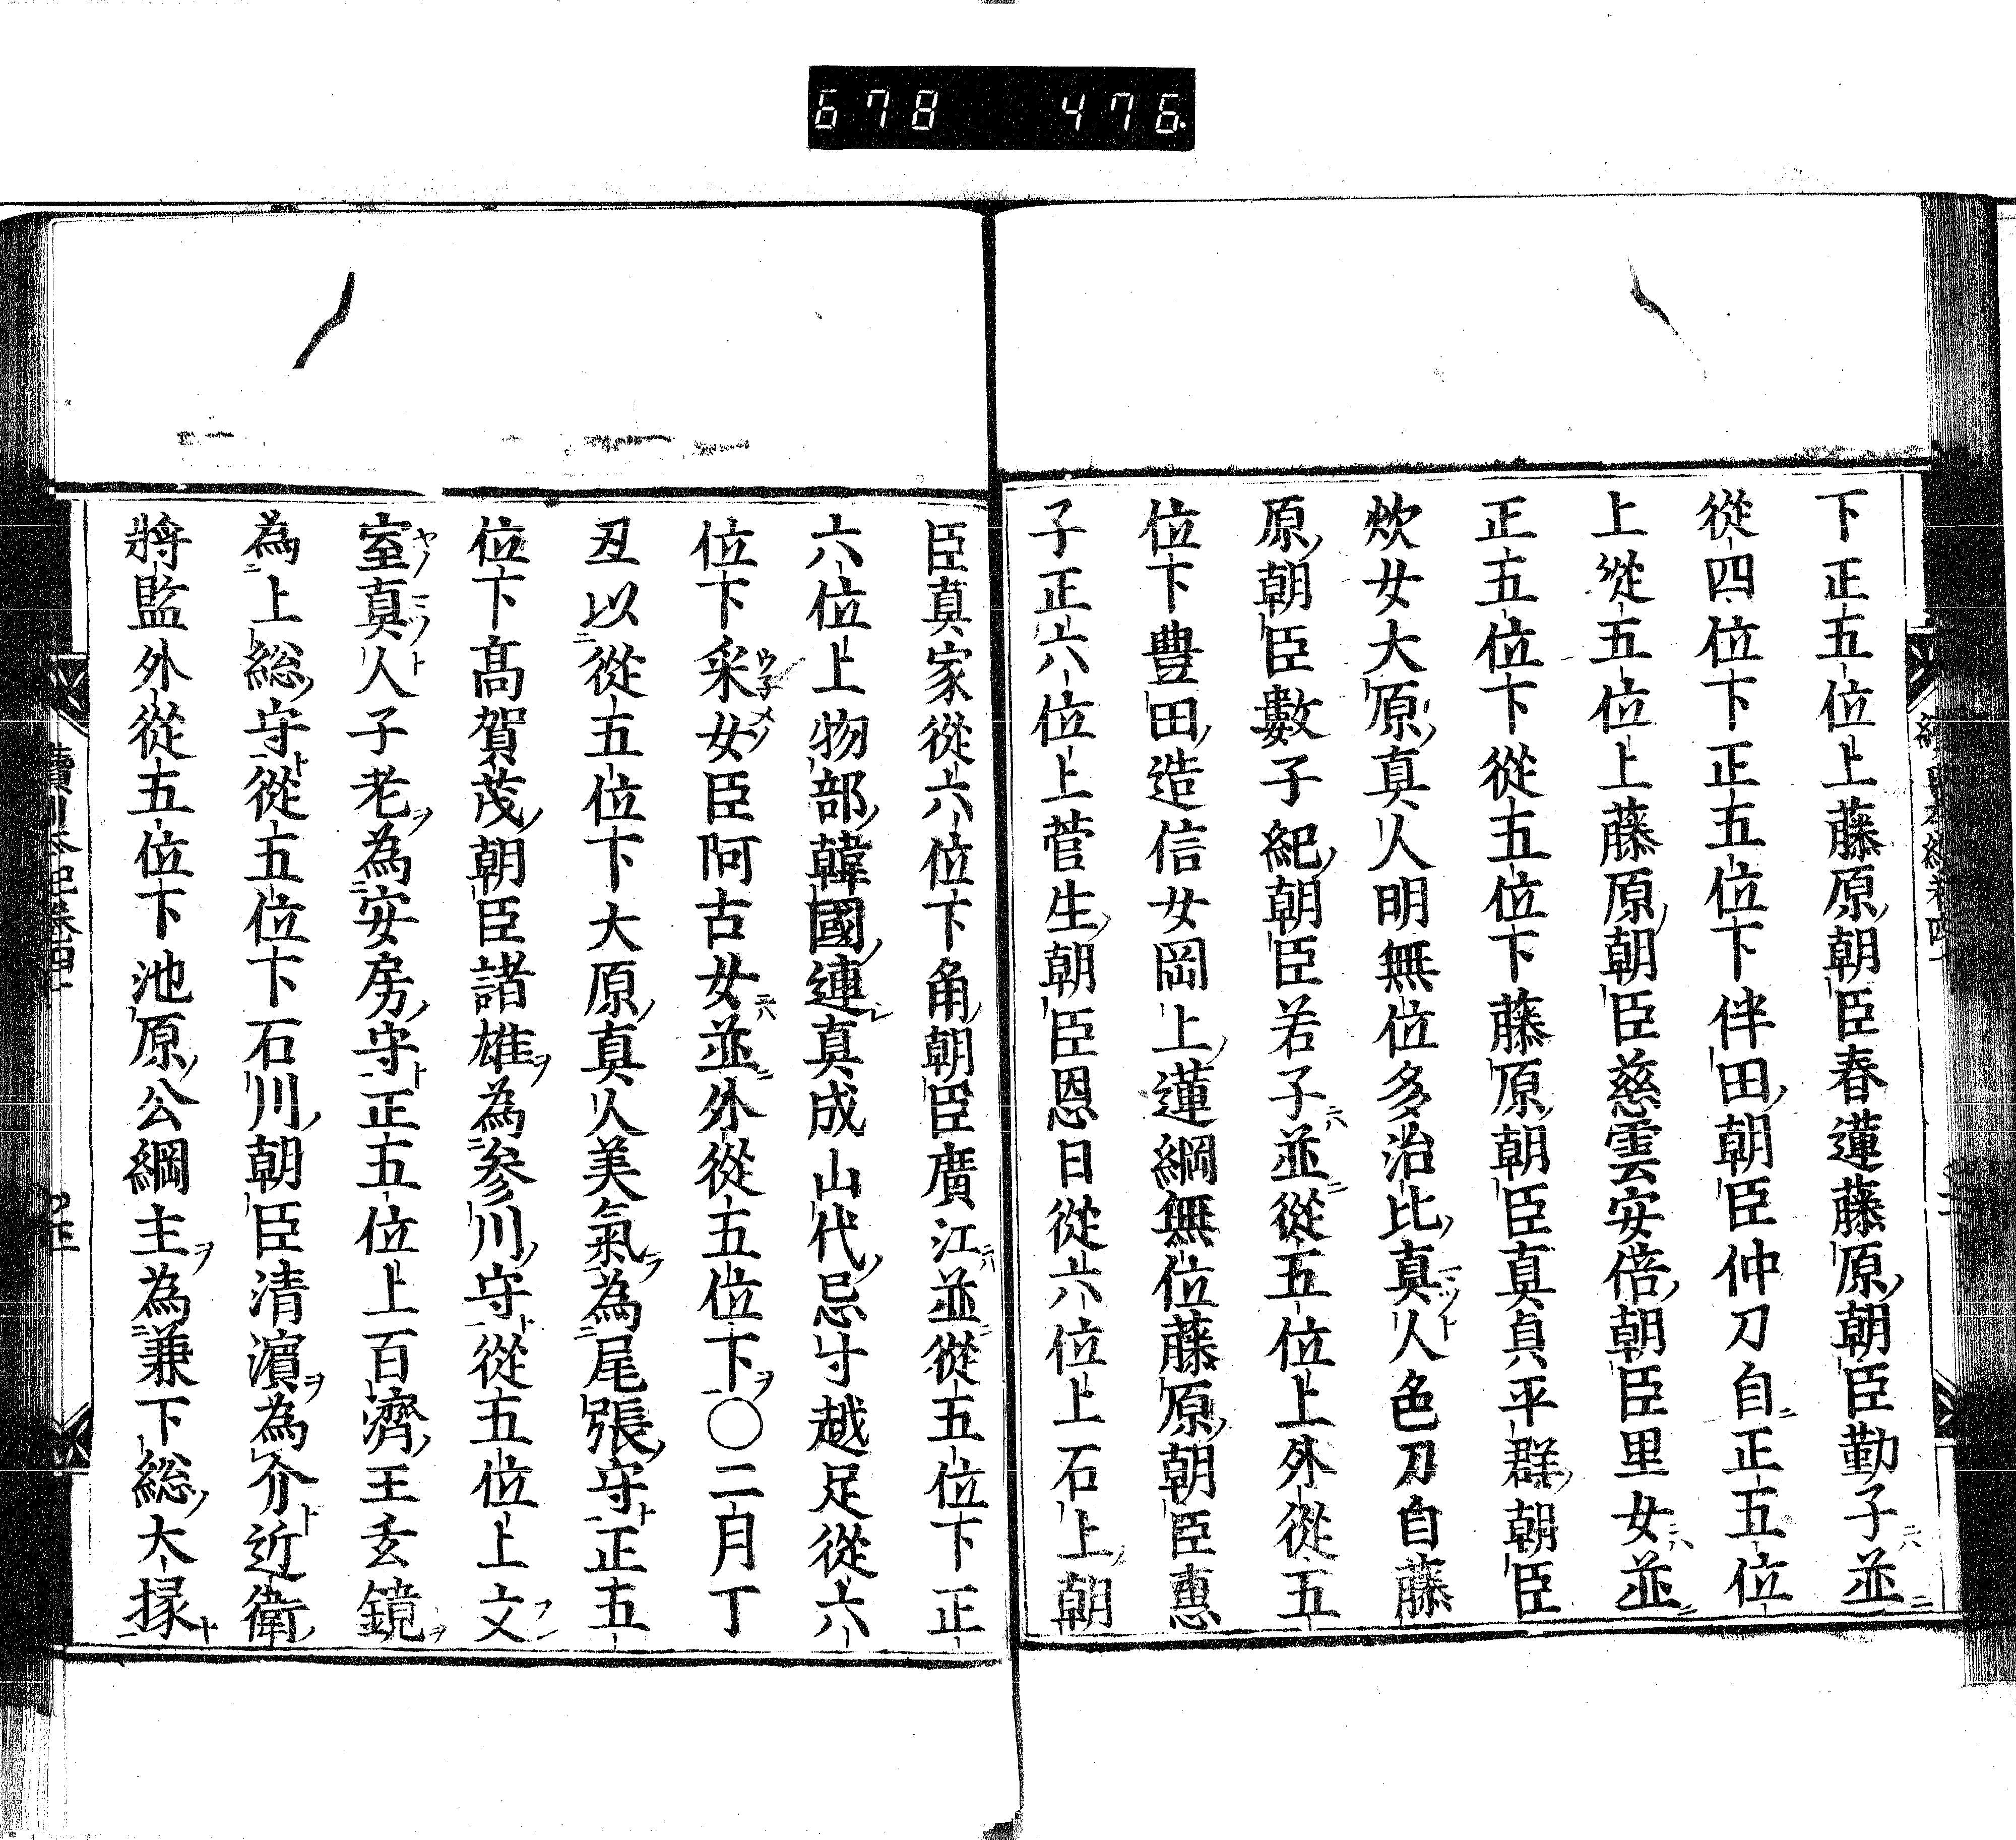 678 476
下正五位上藤原朝臣春蓮藤原朝臣勤子並
從四位下正五位下伴田朝臣仲刀自正五位
上從五位上藤原朝臣慈雲安倍朝臣里女並
正五位下從五位下藤原朝臣真貞平群朝臣
炊女大原真人明無位多治比真人色刀自藤
原朝臣數子紀朝臣若子並從五位上外從五
位下豊田造信女岡上連綱無位藤原朝臣惠
子正六位上菅生朝臣恩日從六位上石上朝
臣真家從六位下角朝臣廣江並從五位下正
六位上物部韓國連真成山代忌寸越足從六
位下采女臣阿古女並外從五位下〇二月丁
丑以從五位下大原真人美氣為尾張守正五
位下髙賀茂朝臣諸雄為參川守從五位上文
室真人子老為安房守正五位上百濟王玄鏡
為上総守從五位下石川朝臣清濵為介近衛
將監外從五位下池原公綱主為兼下総大掾